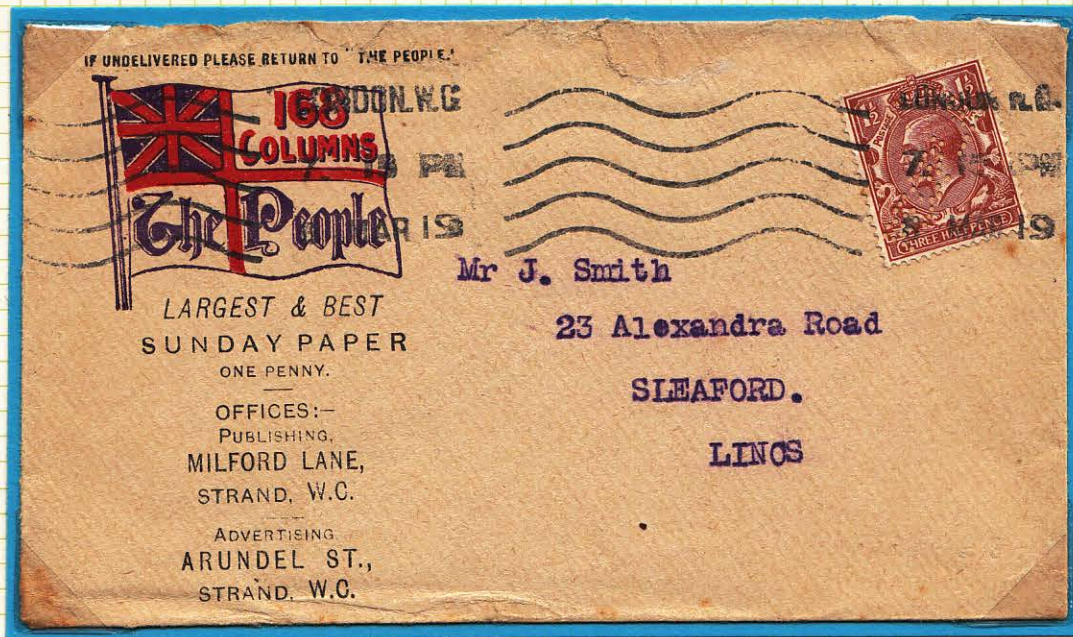 IF UNDELIVERED PLEASE RETURN TO "THE PEOPLE."
168
COLUMNS
The People
LARGEST & BEST
SUNDAY PAPER
ONE PENNY.
OFFICES:-
PUBLISHING,
MILFORD LANE,
STRAND, W.C.
ADVERTISING
ARUNDEL ST.,
STRAND, W.C.
LONDON. W.C
7. 15 PM
MAR 19
1½ 1½
POSTAGE
THREE HALFPENCE
LONDON
7. 15 PM
8 19
Mr J. Smith
23 Alexandra Road
SLEAFORD.
LINCS